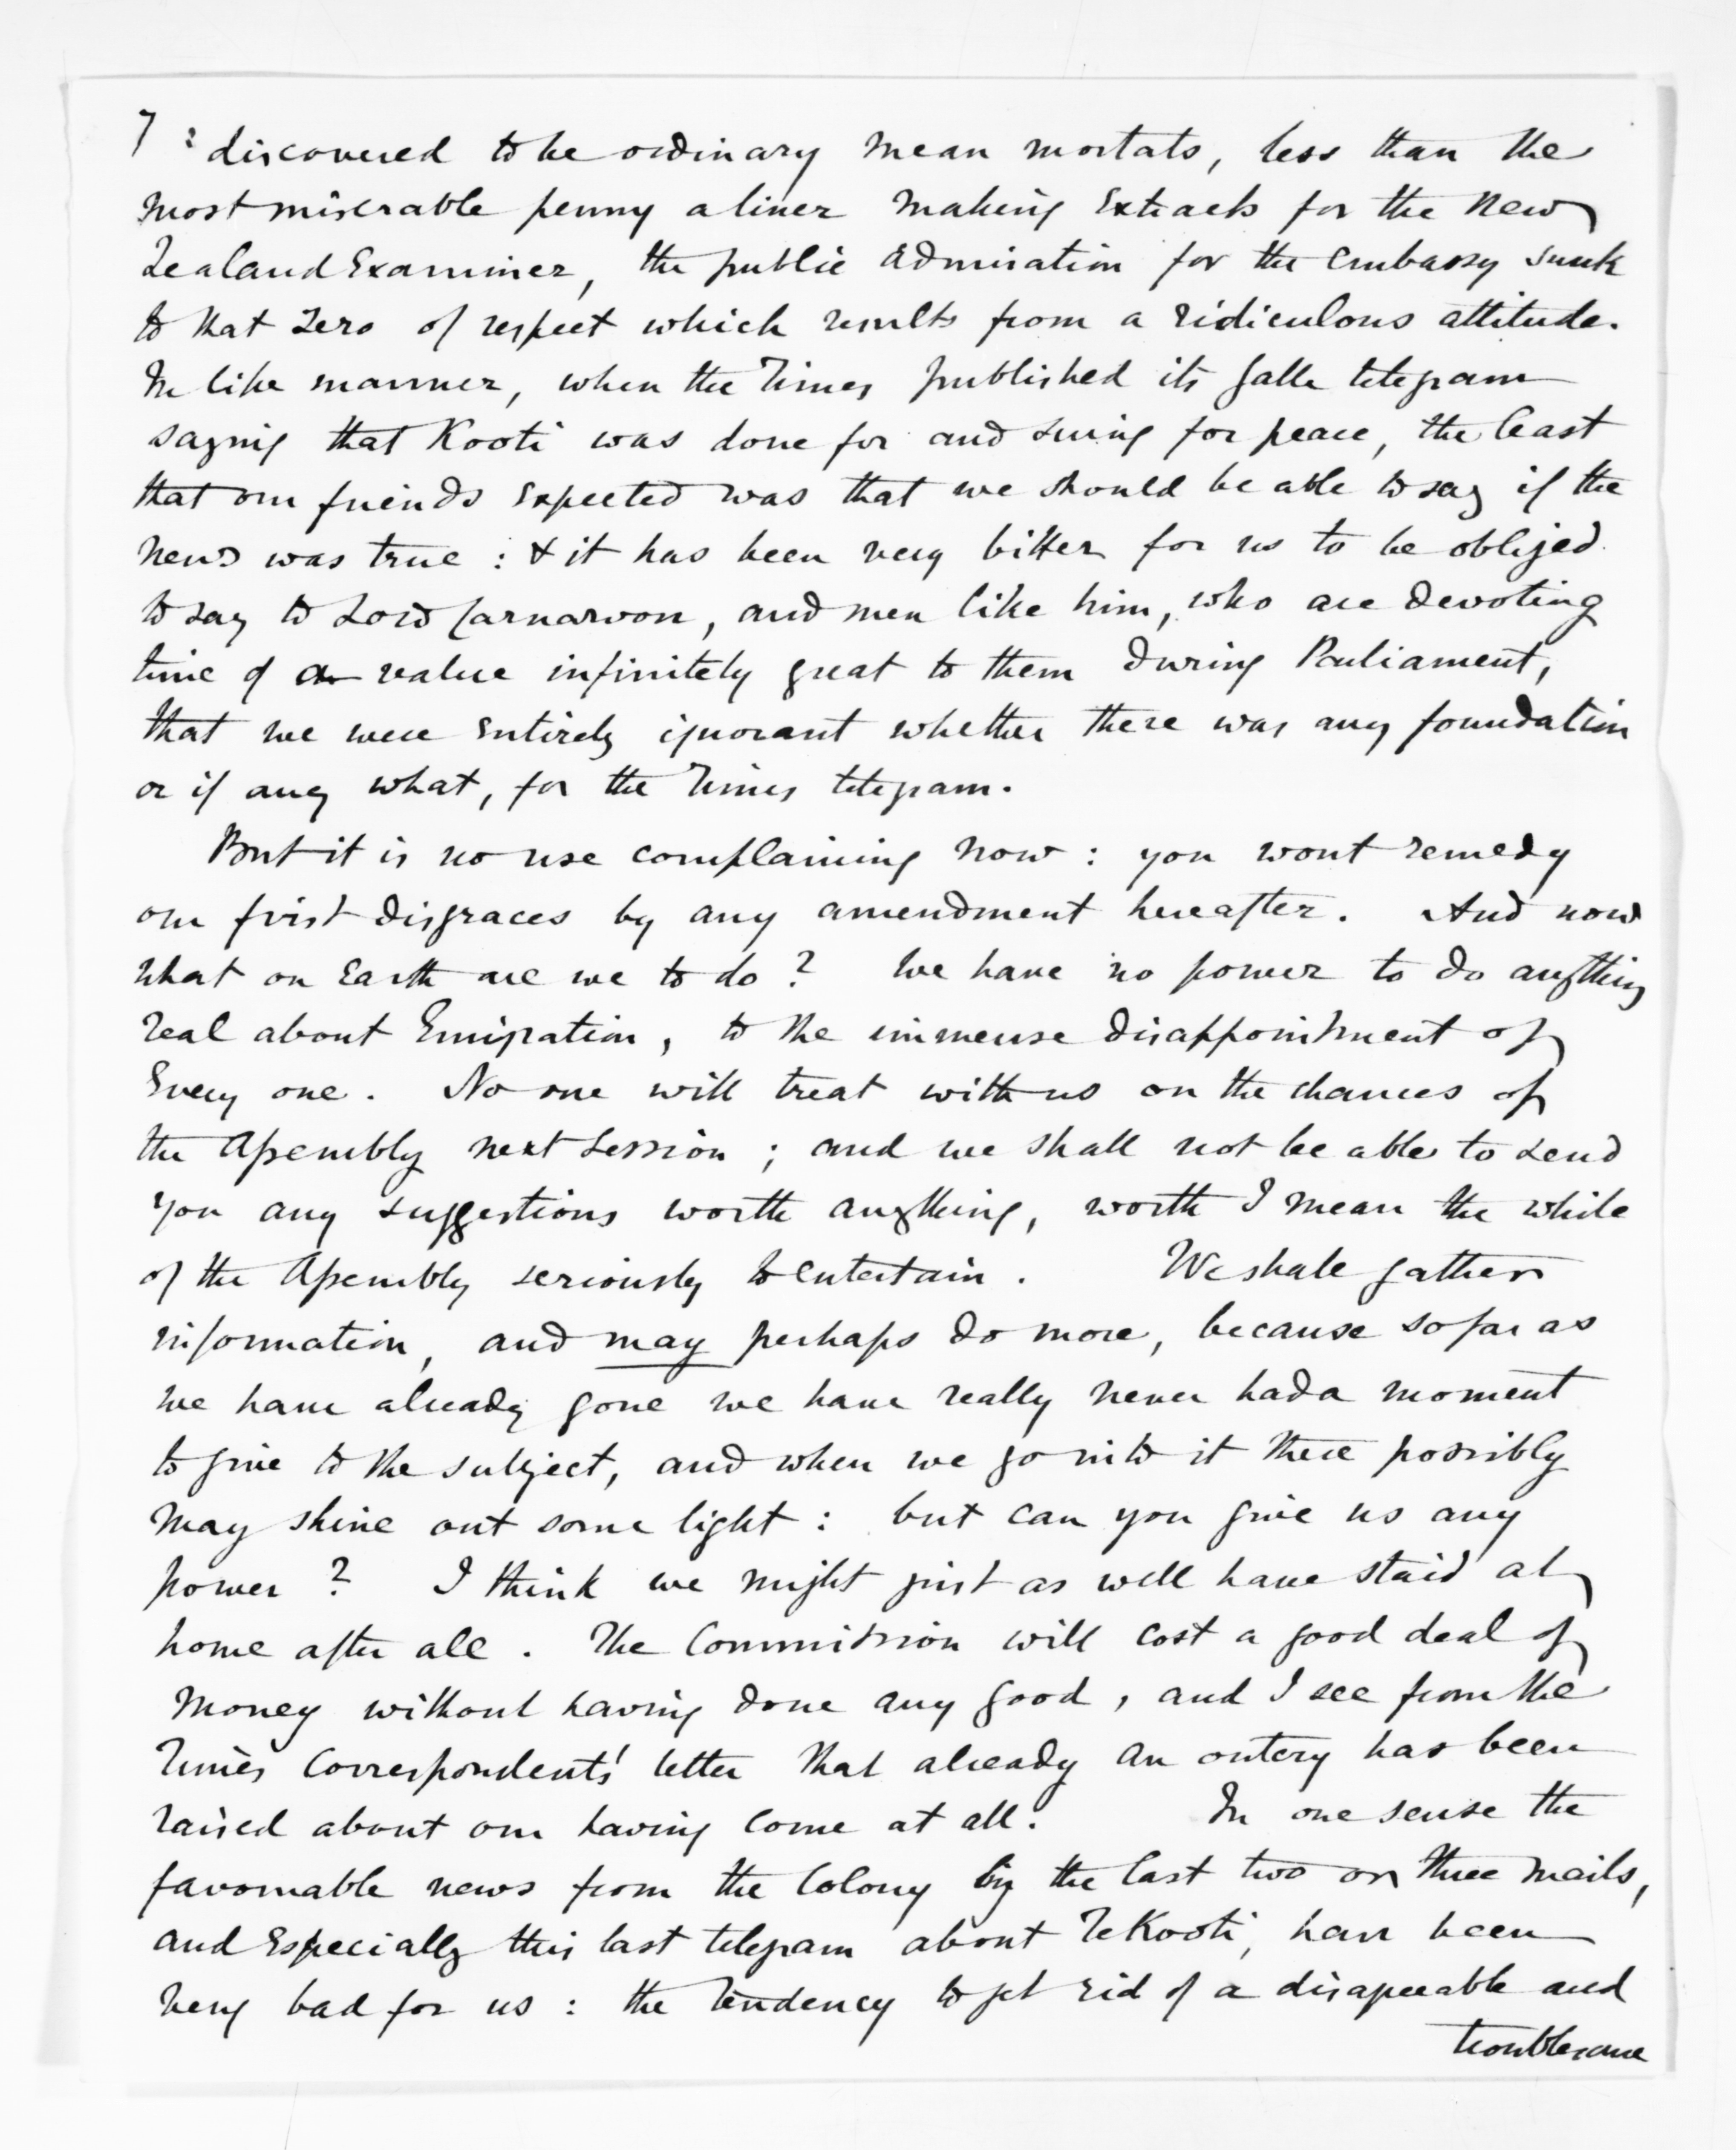 7 : discovered to be ordinary mean mortals, less than the
most miserable penny a liner making Extracts for the New
Zealand Examiner, the public admiration for the Embassy sunk
to that zero of respect which results from a ridiculous attitude.
In like manner, when the Times published its Galle telegram
saying that Kooti was done for and suing for peace, the least
that our friends Expected was that we should be able to say if the
news was true : & it has been very bitter for us to be obliged
to say to Lord Carnarvon, and men like him, who are devoting
time of a value infinitely great to them during Parliament,
that we were Entirely ignorant whether there was any foundation
or if any what, for the Times telegram.
But it is no use complaining now : you wont remedy
our first disgraces by any amendment hereafter. And now
what on Earth are we to do ? We have no power to do anything
real about Emigration, to the immense disappointment of
Every one. No one will treat with us on the chances of
the Assembly next Session ; and we shall not be able to send
you any suggestions worth anything, worth I mean the while
of the Assembly seriously to entertain. We shall gather
information, and may perhaps do more, because so far as
we have already gone we have really never had a moment
to give to the subject, and when we go into it there possibly
may shine out some light : but can you give us any
power ? I think we might just as well have staid at
home after all. The Commission will cost a good deal of
money without having done any good, and I see from the
Times Correspondents' letter that already an outcry has been
raised about our having come at all. In one sense the
favourable news from the Colony by the last two or three mails,
and Especially this last telegram about Te Kooti, have been
very bad for us : the tendency to get rid of a disagreeable and
troublesome